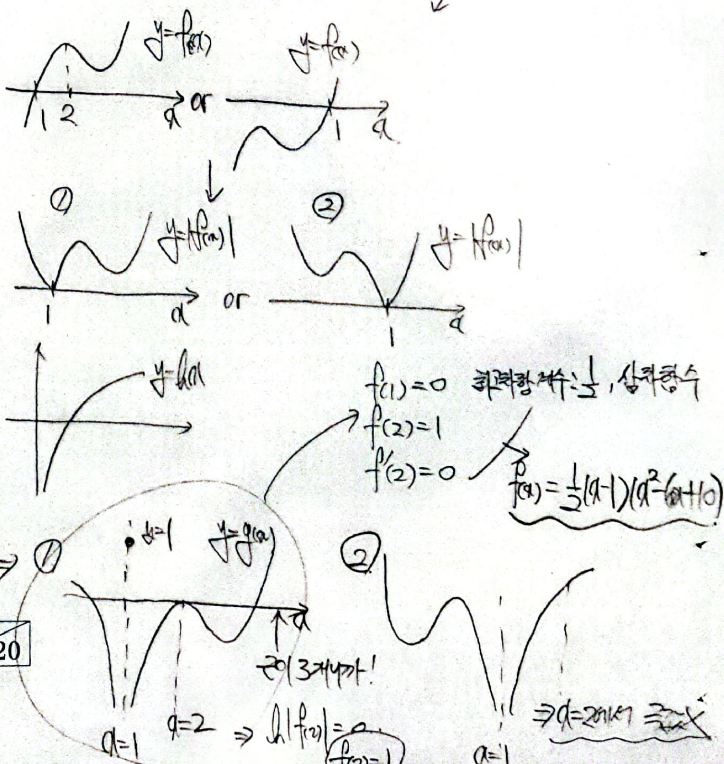 y=f(x)
y=f(x)
1 2 x or 1 x
① ②
y=|f(x)|
y=|f(x)|
1 x or 1 x
y=ln x
f(1)=0 최고차항계수:½, 삼차함수
f(2)=1
f'(2)=0
f(x)=½(x-1)(x²-6x+10)
⇒ ① x=1 y=g(x) ②
x
20
근이 3개니까!
x=1 x=2 ⇒ ln|f(2)|=0
f(2)=1
x=1
⇒ x=2에서 극값 X